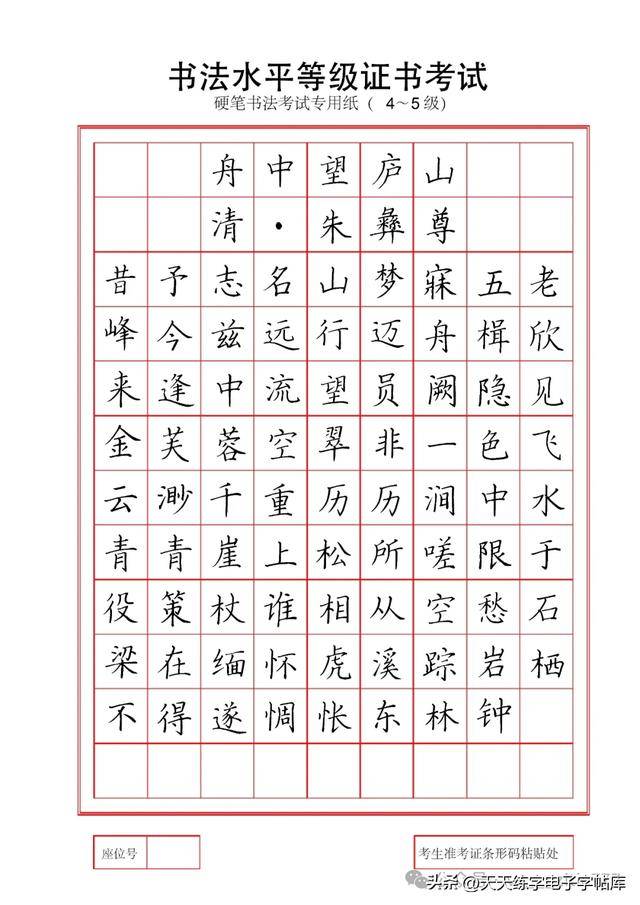 书法水平等级证书考试
硬笔书法考试专用纸( 4~5级)
舟中望庐山
清·朱彝尊
昔予志名山梦寐五老
峰今兹远行迈舟楫欣
来逢中流望员阙隐见
金芙蓉空翠非一色飞
云渺千重历历涧中水
青青崖上松所嗟限于
役策杖谁相从空愁石
梁在缅怀虎溪踪岩栖
不得遂惆怅东林钟
座位号
考生准考证条形码粘贴处
头条@天天练字电子字帖库